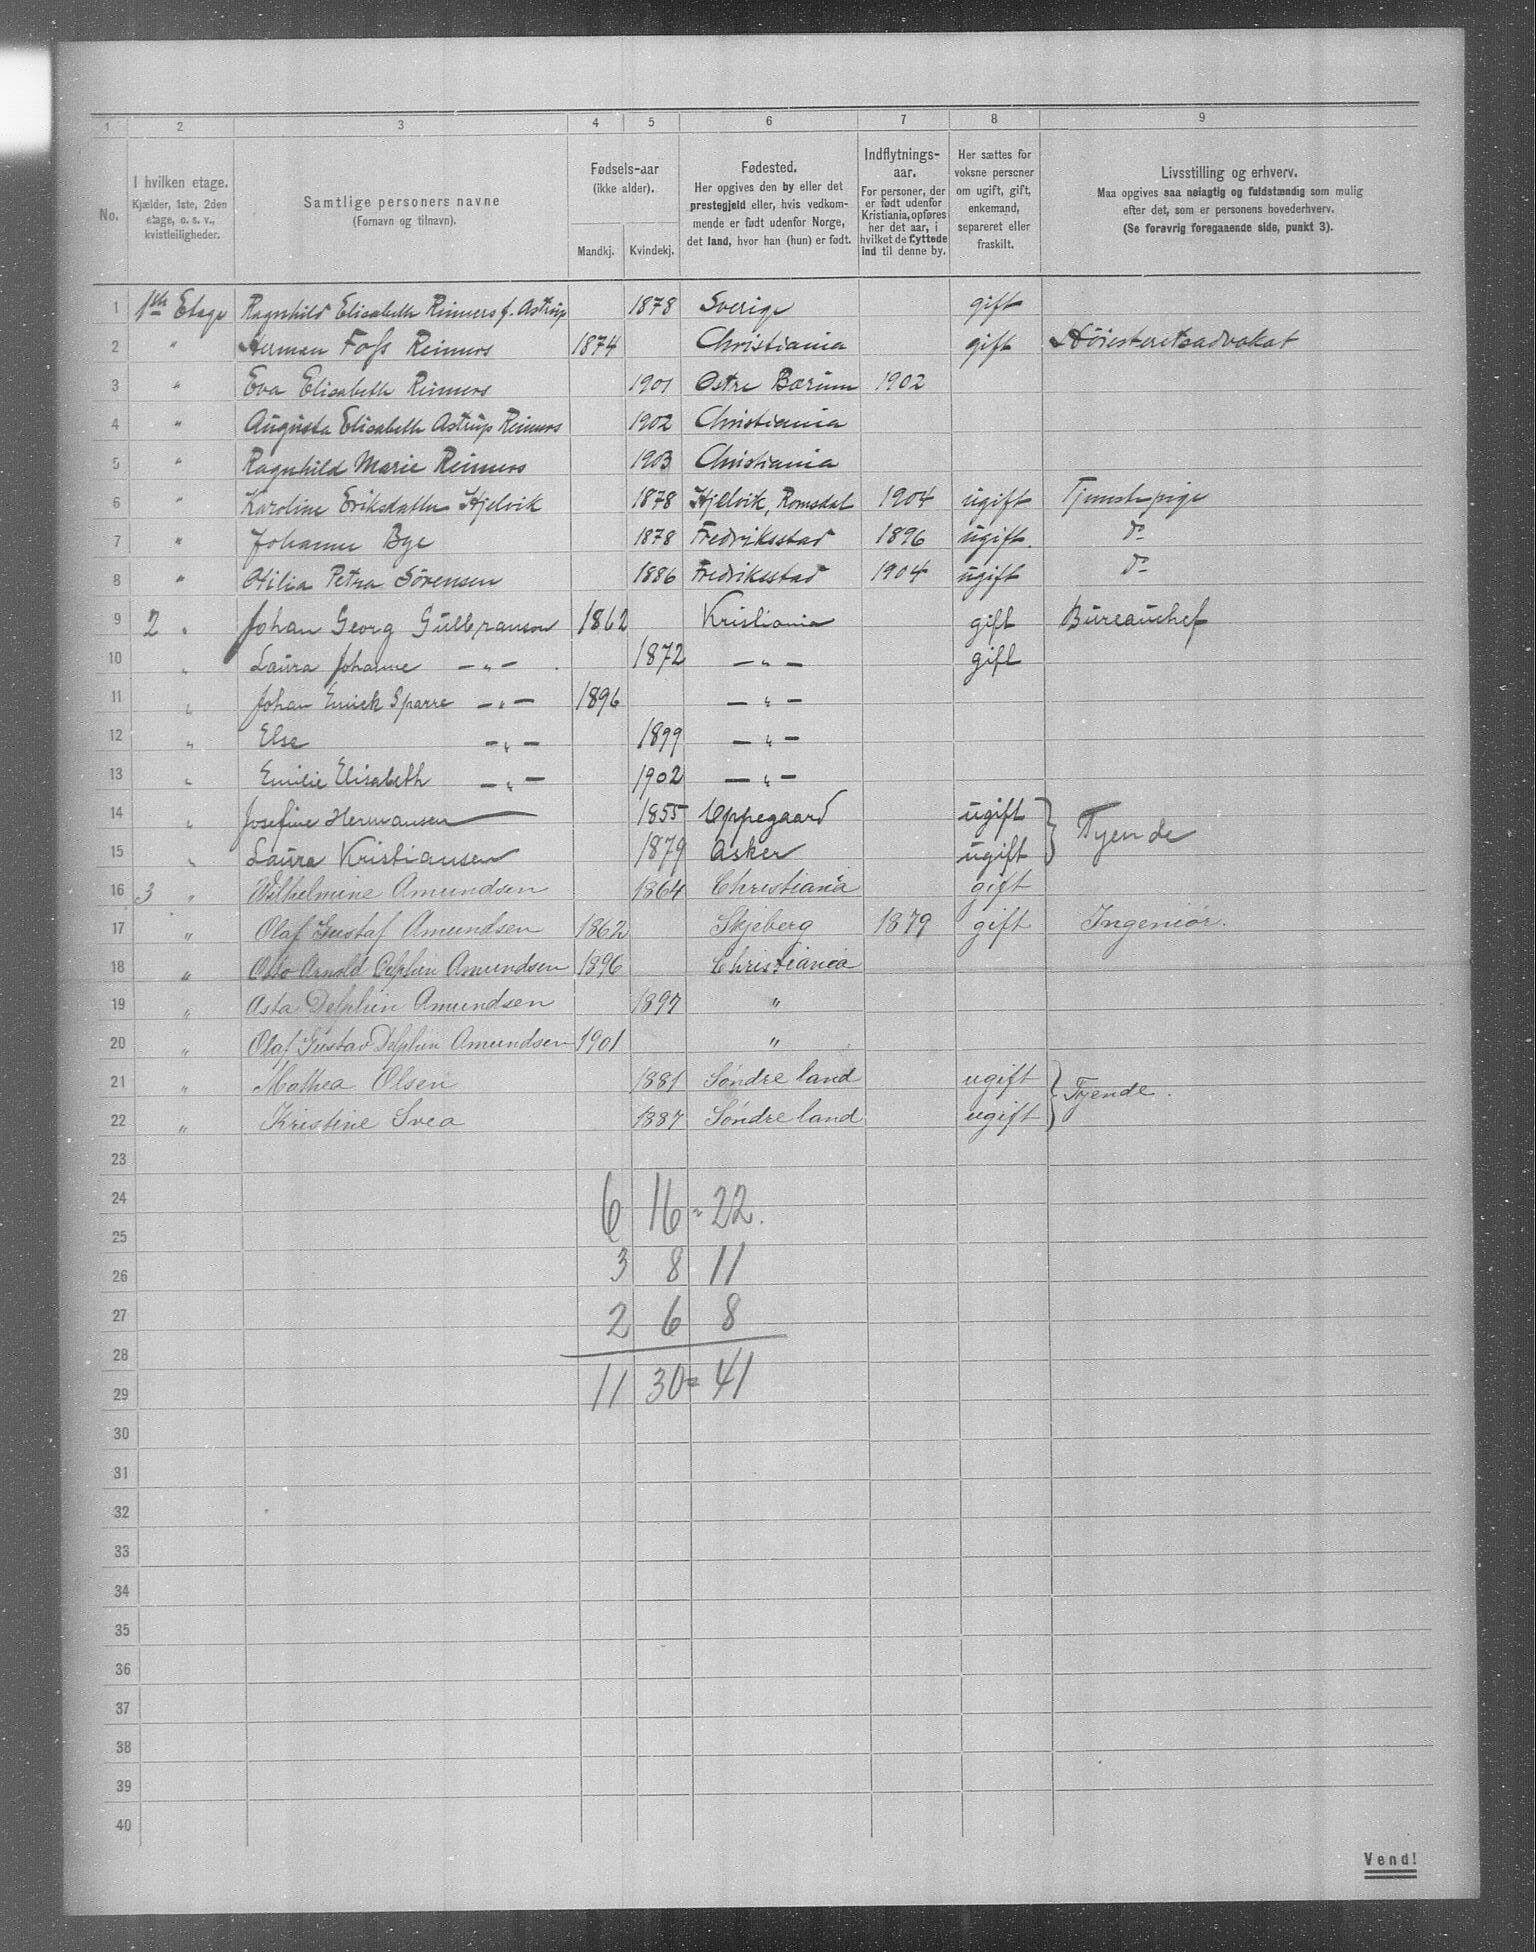 1 2 3 4 5 6 7 8 9
No.
I hvilken etage.
Kjælder, 1ste, 2den
etage, o. s. v.,
kvistleiligheder.
Samtlige personers navne
(Fornavn og tilnavn).
Fødsels-aar
(ikke alder).
Mandkj. Kvindekj.
Fødested.
Her opgives den by eller det
prestegjeld eller, hvis vedkom-
mende er født udenfor Norge,
det land, hvor han (hun) er født.
Indflytnings-
aar.
For personer, der
er født udenfor
Kristiania, opføres
her det aar, i
hvilket de flyttede
ind til denne by.
Her sættes for
voksne personer
om ugift, gift,
enkemand,
separeret eller
fraskilt.
Livsstilling og erhverv.
Maa opgives saa nøiagtig og fuldstændig som mulig
efter det, som er personens hovederhverv.
(Se forøvrig foregaaende side, punkt 3).
1 1ste Etage Ragnhild Elisabeth Reimers f. Astrup 1878 Sverige gift
2 " Herman Foss Reimers 1874 Christiania gift Høiesteretsadvokat
3 " Eva Elisabeth Reimers 1901 Østre Bærum 1902
4 " Augusta Elisabeth Astrup Reimers 1902 Christiania
5 " Ragnhild Marie Reimers 1903 Christiania
6 " Karoline Eriksdatter Hjelvik 1878 Hjelvik, Romsdal 1904 ugift Tjenestepige
7 " Johanne Bye 1878 Fredriksstad 1896 ugift. do
8 " Otilia Petra Sörensen 1886 Fredriksstad 1904 ugift do
9 2 " Johan Georg Gulbranson 1862 Kristiania gift Bureauchef
10 " Laura Johanne — " — 1872 — " — gift
11 " Johan Sparre — " — 1896 — " —
12 " Else — " — 1899 — " —
13 " Emilie Elisabeth — " — 1902 — " —
14 " Josefine Hermansen 1855 Oppegaard ugift } Tyende
15 " Laura Kristiansen 1879 Asker ugift
16 3 " Wilhelmine Amundsen 1864 Christiania gift
17 " Olaf Gustaf Amundsen 1862 Skjeberg 1879 gift Ingeniør.
18 " Otto Arnold Delphin Amundsen 1896 Christiania
19 " Asta Delphin Amundsen 1897 "
20 " Olaf Gustav Delphin Amundsen 1901 "
21 " Mathea Olsen 1881 Søndre land ugift } Tyende.
22 " Kristine Svea 1887 Søndre land ugift
23
24 6 16 = 22.
25
26 3 8 11
27 2 6 8
28
29 11 30 = 41
30
31
32
33
34
35
36
37
38
39
40
Vend!